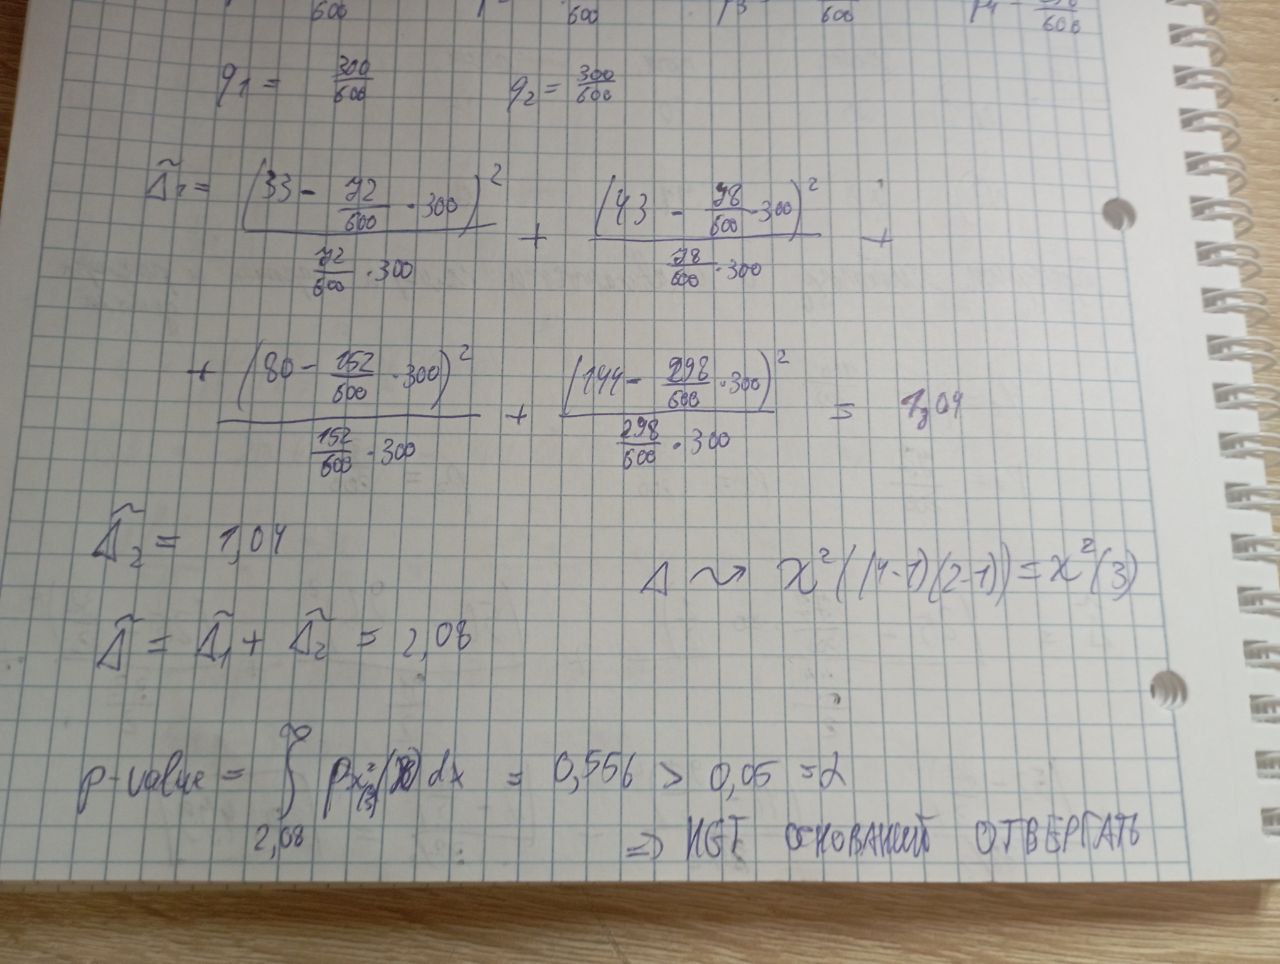 600 600 p3 600 p4 = 600
q1 = 300/600 q2 = 300/600
Δ̃1 = (33 - 72/600 · 300)² / (72/600 · 300) + (43 - 78/600 · 300)² / (78/600 · 300) +
+ (80 - 152/600 · 300)² / (152/600 · 300) + (144 - 298/600 · 300)² / (298/600 · 300) = 1,04
Δ̃2 = 1,04
Δ ⇝ χ²((4-1)(2-1)) = χ²(3)
Δ̃ = Δ̃1 + Δ̃2 = 2,08
p-value = ∫_{2,08}^{∞} p_{χ²(3)}(x) dx = 0,556 > 0,05 = α
⇒ НЕТ ОСНОВАНИЙ ОТВЕРГАТЬ